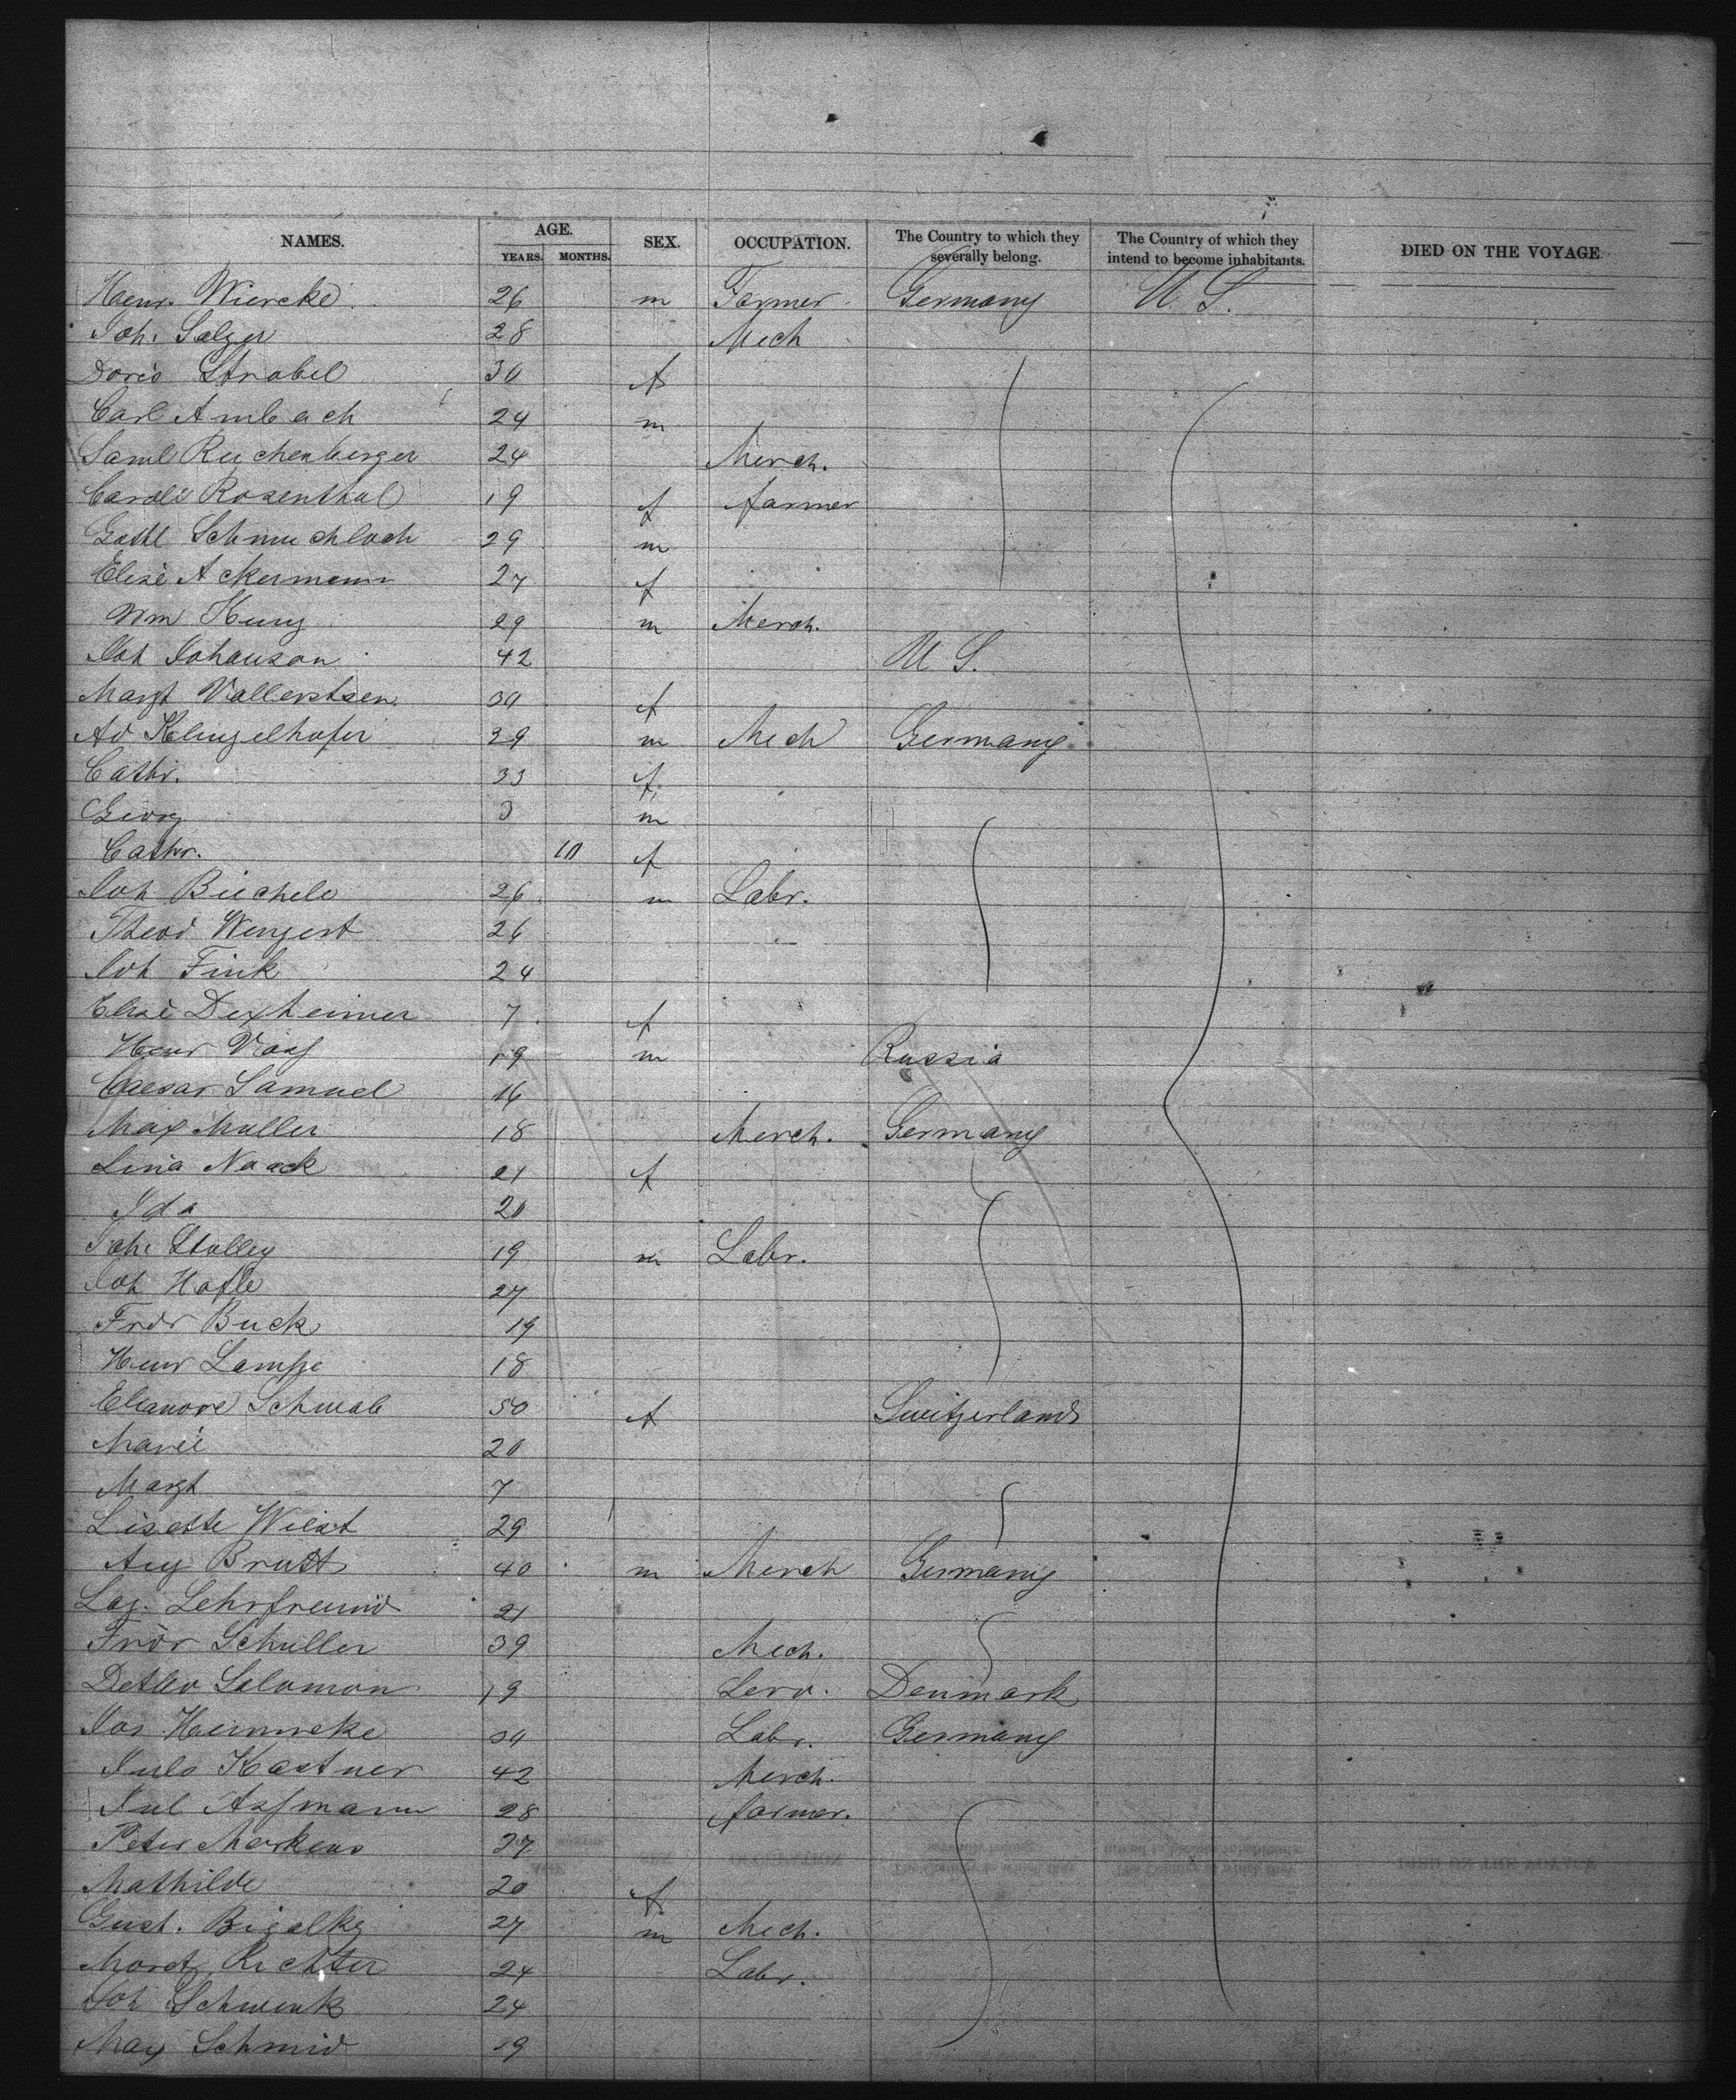 NAMES. AGE. SEX. OCCUPATION. The Country to which they severally belong. The Country of which they intend to become inhabitants. DIED ON THE VOYAGE.
YEARS. MONTHS.
Henr. Wiercke 26 m Farmer Germany U. S.
Joh. Salzer 28 Mech
Doris Strobel 30 f
Carl Ambach 24 m
Saml Reichenberger 24 Merch.
Carole Rosenthal 19 f farmer
Gottl Schmuchloch 29 m
Elise Ackermann 27 f
Wm Kurz 29 m Merch.
Joh Johanson 42 U S.
Margt Vallerstsen 30 f
Ad Klingelhofer 39 m Mech Germany
Cathr. 33 f
Georg 3 m
Cathr. 10 f
Joh Biechele 26 m Labr.
Theod Wengert 26
Joh Fink 24
Elise Dexheimer 7 f
Henr 19 m Russia
Caesar Samuel 16
Max Muller 18 Merch. Germany
Lina Naack 21 f
Ida 20
Joh. Stolley 19 m Labr.
Joh Hafle 27
Fredr Buck 19
Henr Lampe 18
Eleanore Schwab 50 f Switzerland
Marie 20
Margt 7
Lisette Wiest 29
Aug Brutt 40 m Merch Germany
Laz. Lehrfreund 21
Fredr Schuller 39 Mech.
Detlev Salomon 19 Serv. Denmark
Jos Heinneke 30 Labr. Germany
Juls Kastner 42 Merch.
Jul Assmann 28 farmer.
Peter Merkens 27
Mathilde 20 f
Gust. Bigalke 27 m Mech.
Moretz Richter 24 Labr.
Joh Schwenk 24
Max Schmid 19